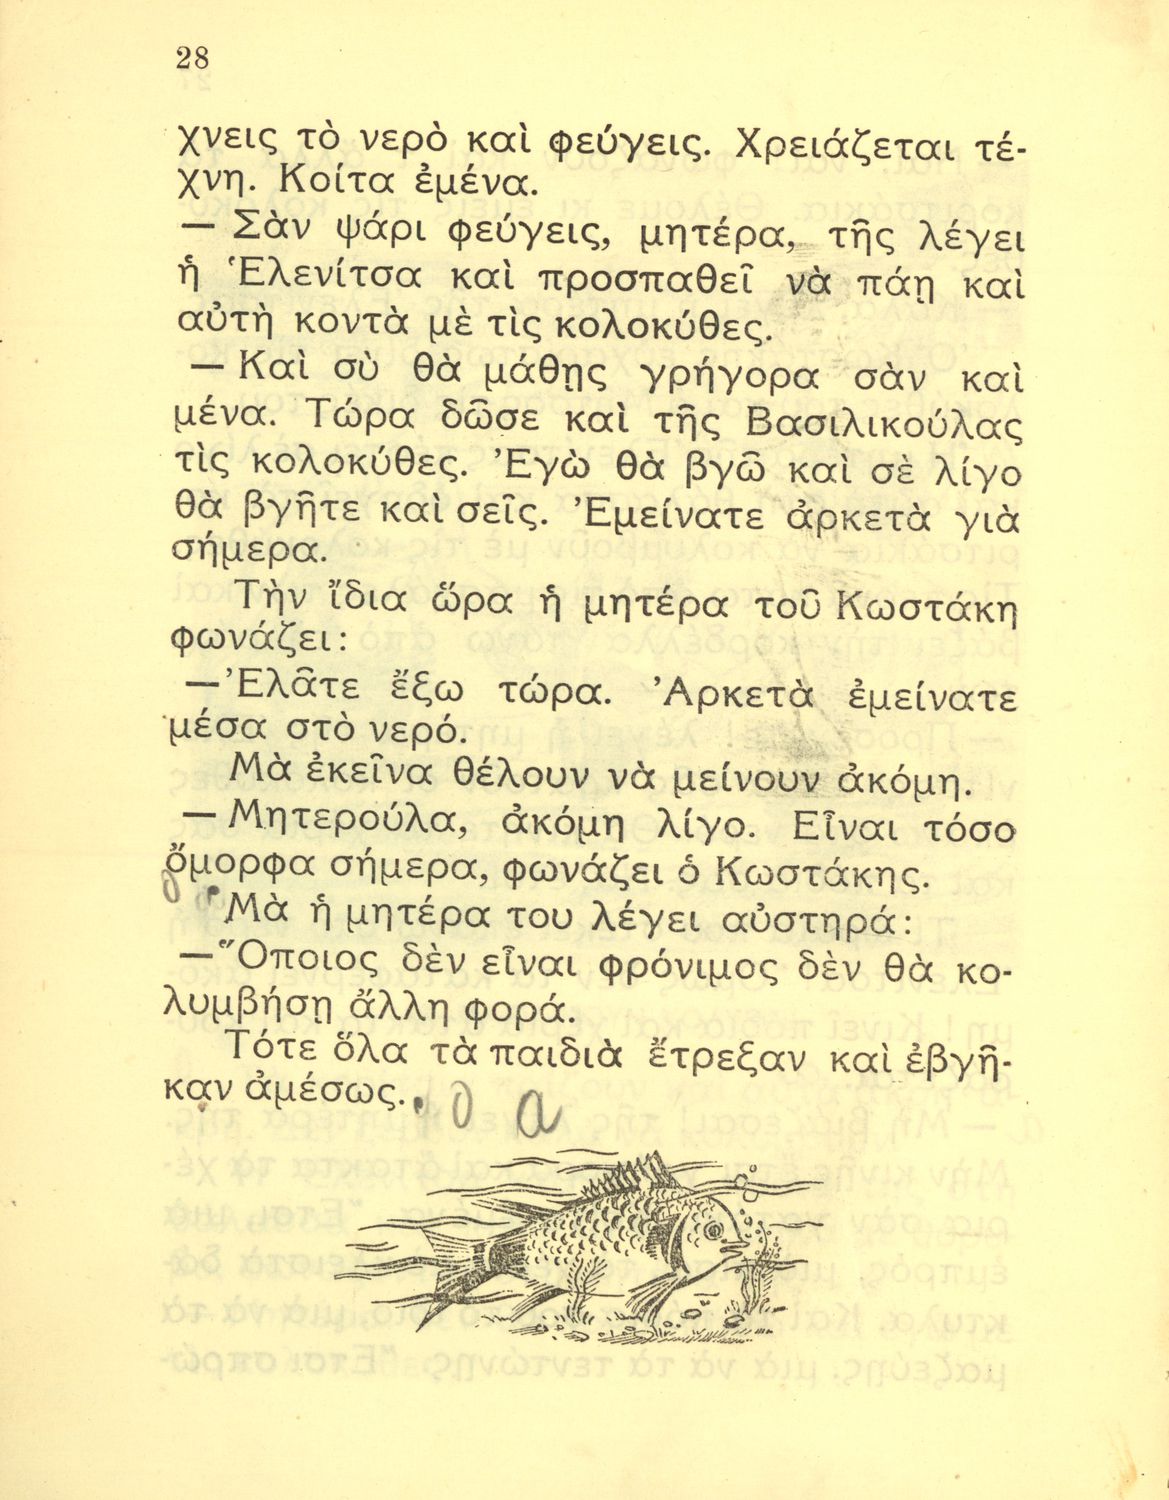 28
χνεις τὸ νερὸ καὶ φεύγεις. Χρειάζεται τέ-
χνη. Κοίτα ἐμένα.
— Σὰν ψάρι φεύγεις, μητέρα, τῆς λέγει
ἡ Ἑλενίτσα καὶ προσπαθεῖ νὰ πάῃ καὶ
αὐτὴ κοντὰ μὲ τὶς κολοκύθες.
— Καὶ σὺ θὰ μάθῃς γρήγορα σὰν καὶ
μένα. Τώρα δῶσε καὶ τῆς Βασιλικούλας
τὶς κολοκύθες. Ἐγὼ θὰ βγῶ καὶ σὲ λίγο
θὰ βγῆτε καὶ σεῖς. Ἐμείνατε ἀρκετὰ γιὰ
σήμερα.
Τὴν ἴδια ὥρα ἡ μητέρα τοῦ Κωστάκη
φωνάζει:
— Ἐλᾶτε ἔξω τώρα. Ἀρκετὰ ἐμείνατε
μέσα στὸ νερό.
Μὰ ἐκεῖνα θέλουν νὰ μείνουν ἀκόμη.
— Μητερούλα, ἀκόμη λίγο. Εἶναι τόσο
ὄμορφα σήμερα, φωνάζει ὁ Κωστάκης.
Μὰ ἡ μητέρα του λέγει αὐστηρά:
— Ὅποιος δὲν εἶναι φρόνιμος δὲν θὰ κο-
λυμβήσῃ ἄλλη φορά.
Τότε ὅλα τὰ παιδιὰ ἔτρεξαν καὶ ἐβγῆ-
καν ἀμέσως.
∂ α